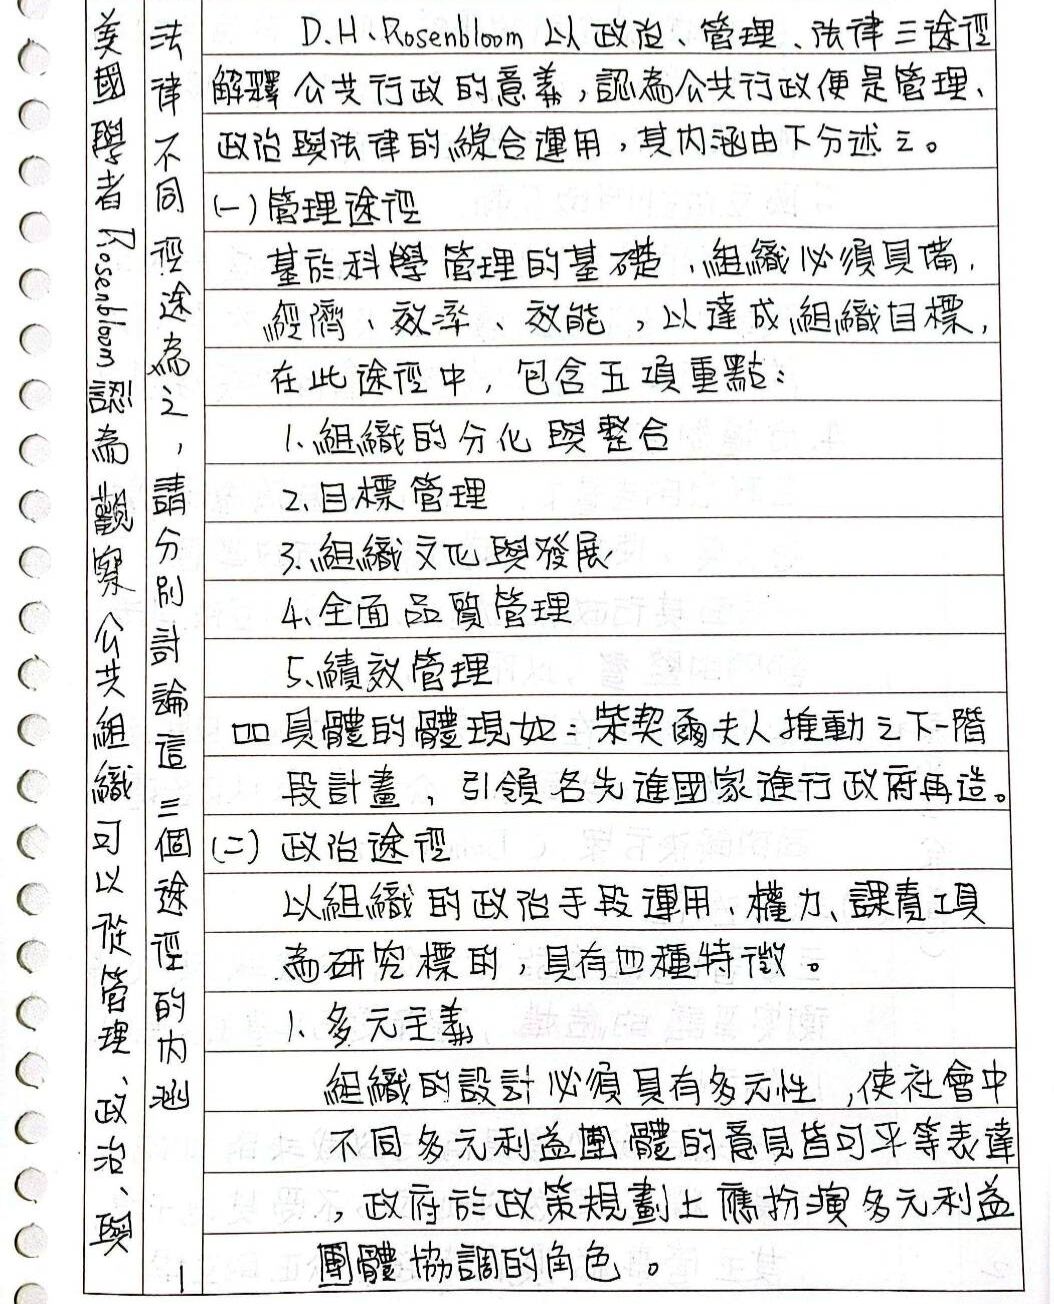 美國學者 Rosenbloom 認為觀察公共組織可以從管理、政治、與
法律不同徑途為之，請分別討論這三個途徑的內涵
D.H.Rosenbloom 以政治、管理、法律三途徑
解釋公共行政的意義，認為公共行政便是管理、
政治與法律的綜合運用，其內涵由下分述之。
(一)管理途徑
基於科學管理的基礎，組織必須具備，
經濟、效率、效能，以達成組織目標，
在此途徑中，包含五項重點：
1.組織的分化與整合
2.目標管理
3.組織文化與發展
4.全面品質管理
5.績效管理
具體的體現如：柴契爾夫人推動之下一階
段計畫，引領各先進國家進行政府再造。
(二)政治途徑
以組織的政治手段運用、權力、課責項
為研究標的，具有四種特徵。
1.多元主義
組織的設計必須具有多元性，使社會中
不同多元利益團體的意見皆可平等表達
，政府於政策規劃上應扮演多元利益
團體協調的角色。